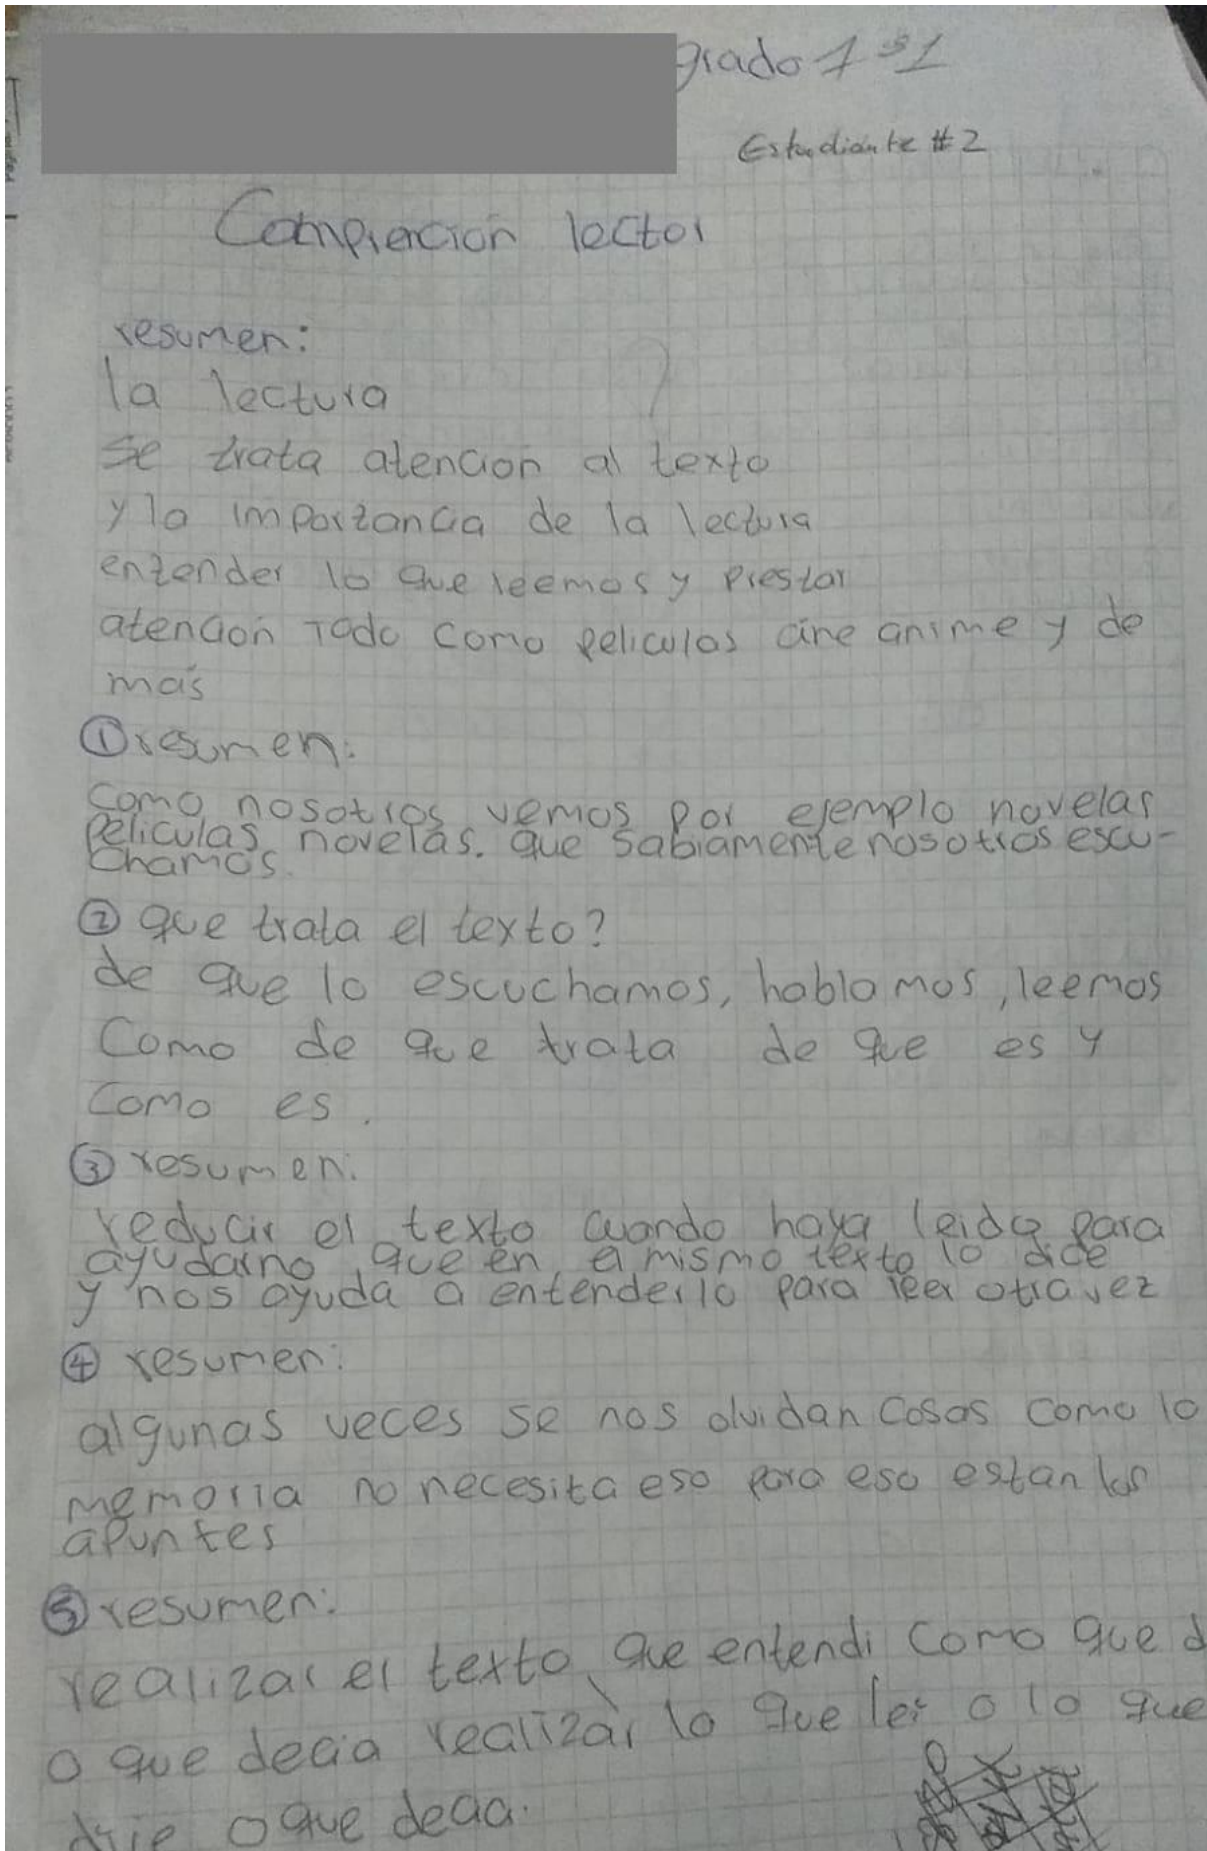 grado 7°1
Estudiante #2
Comprención lector
resumen:
la lectura
se trata atencion al texto
y la importancia de la lectura
entender lo que leemos y prestar
atencion Todo como peliculas cine anime y de
más
① resumen:
Como nosotros vemos por ejemplo novelas
peliculas novelas. que sabiamente nosotros escu-
chamos.
② que trata el texto?
de que lo escuchamos, hablamos, leemos
Como de que trata de que es y
como es.
③ resumen:
reducir el texto cuando haya leido para
ayudarno que en el mismo texto lo dice
y nos ayuda a entenderlo para leer otra vez
④ resumen:
algunas veces se nos olvidan cosas como la
memoria no necesita eso para eso estan los
apuntes
⑤ resumen:
realizar el texto que entendi como que d
o que decia realizar lo que lei o lo que
dije o que decia.